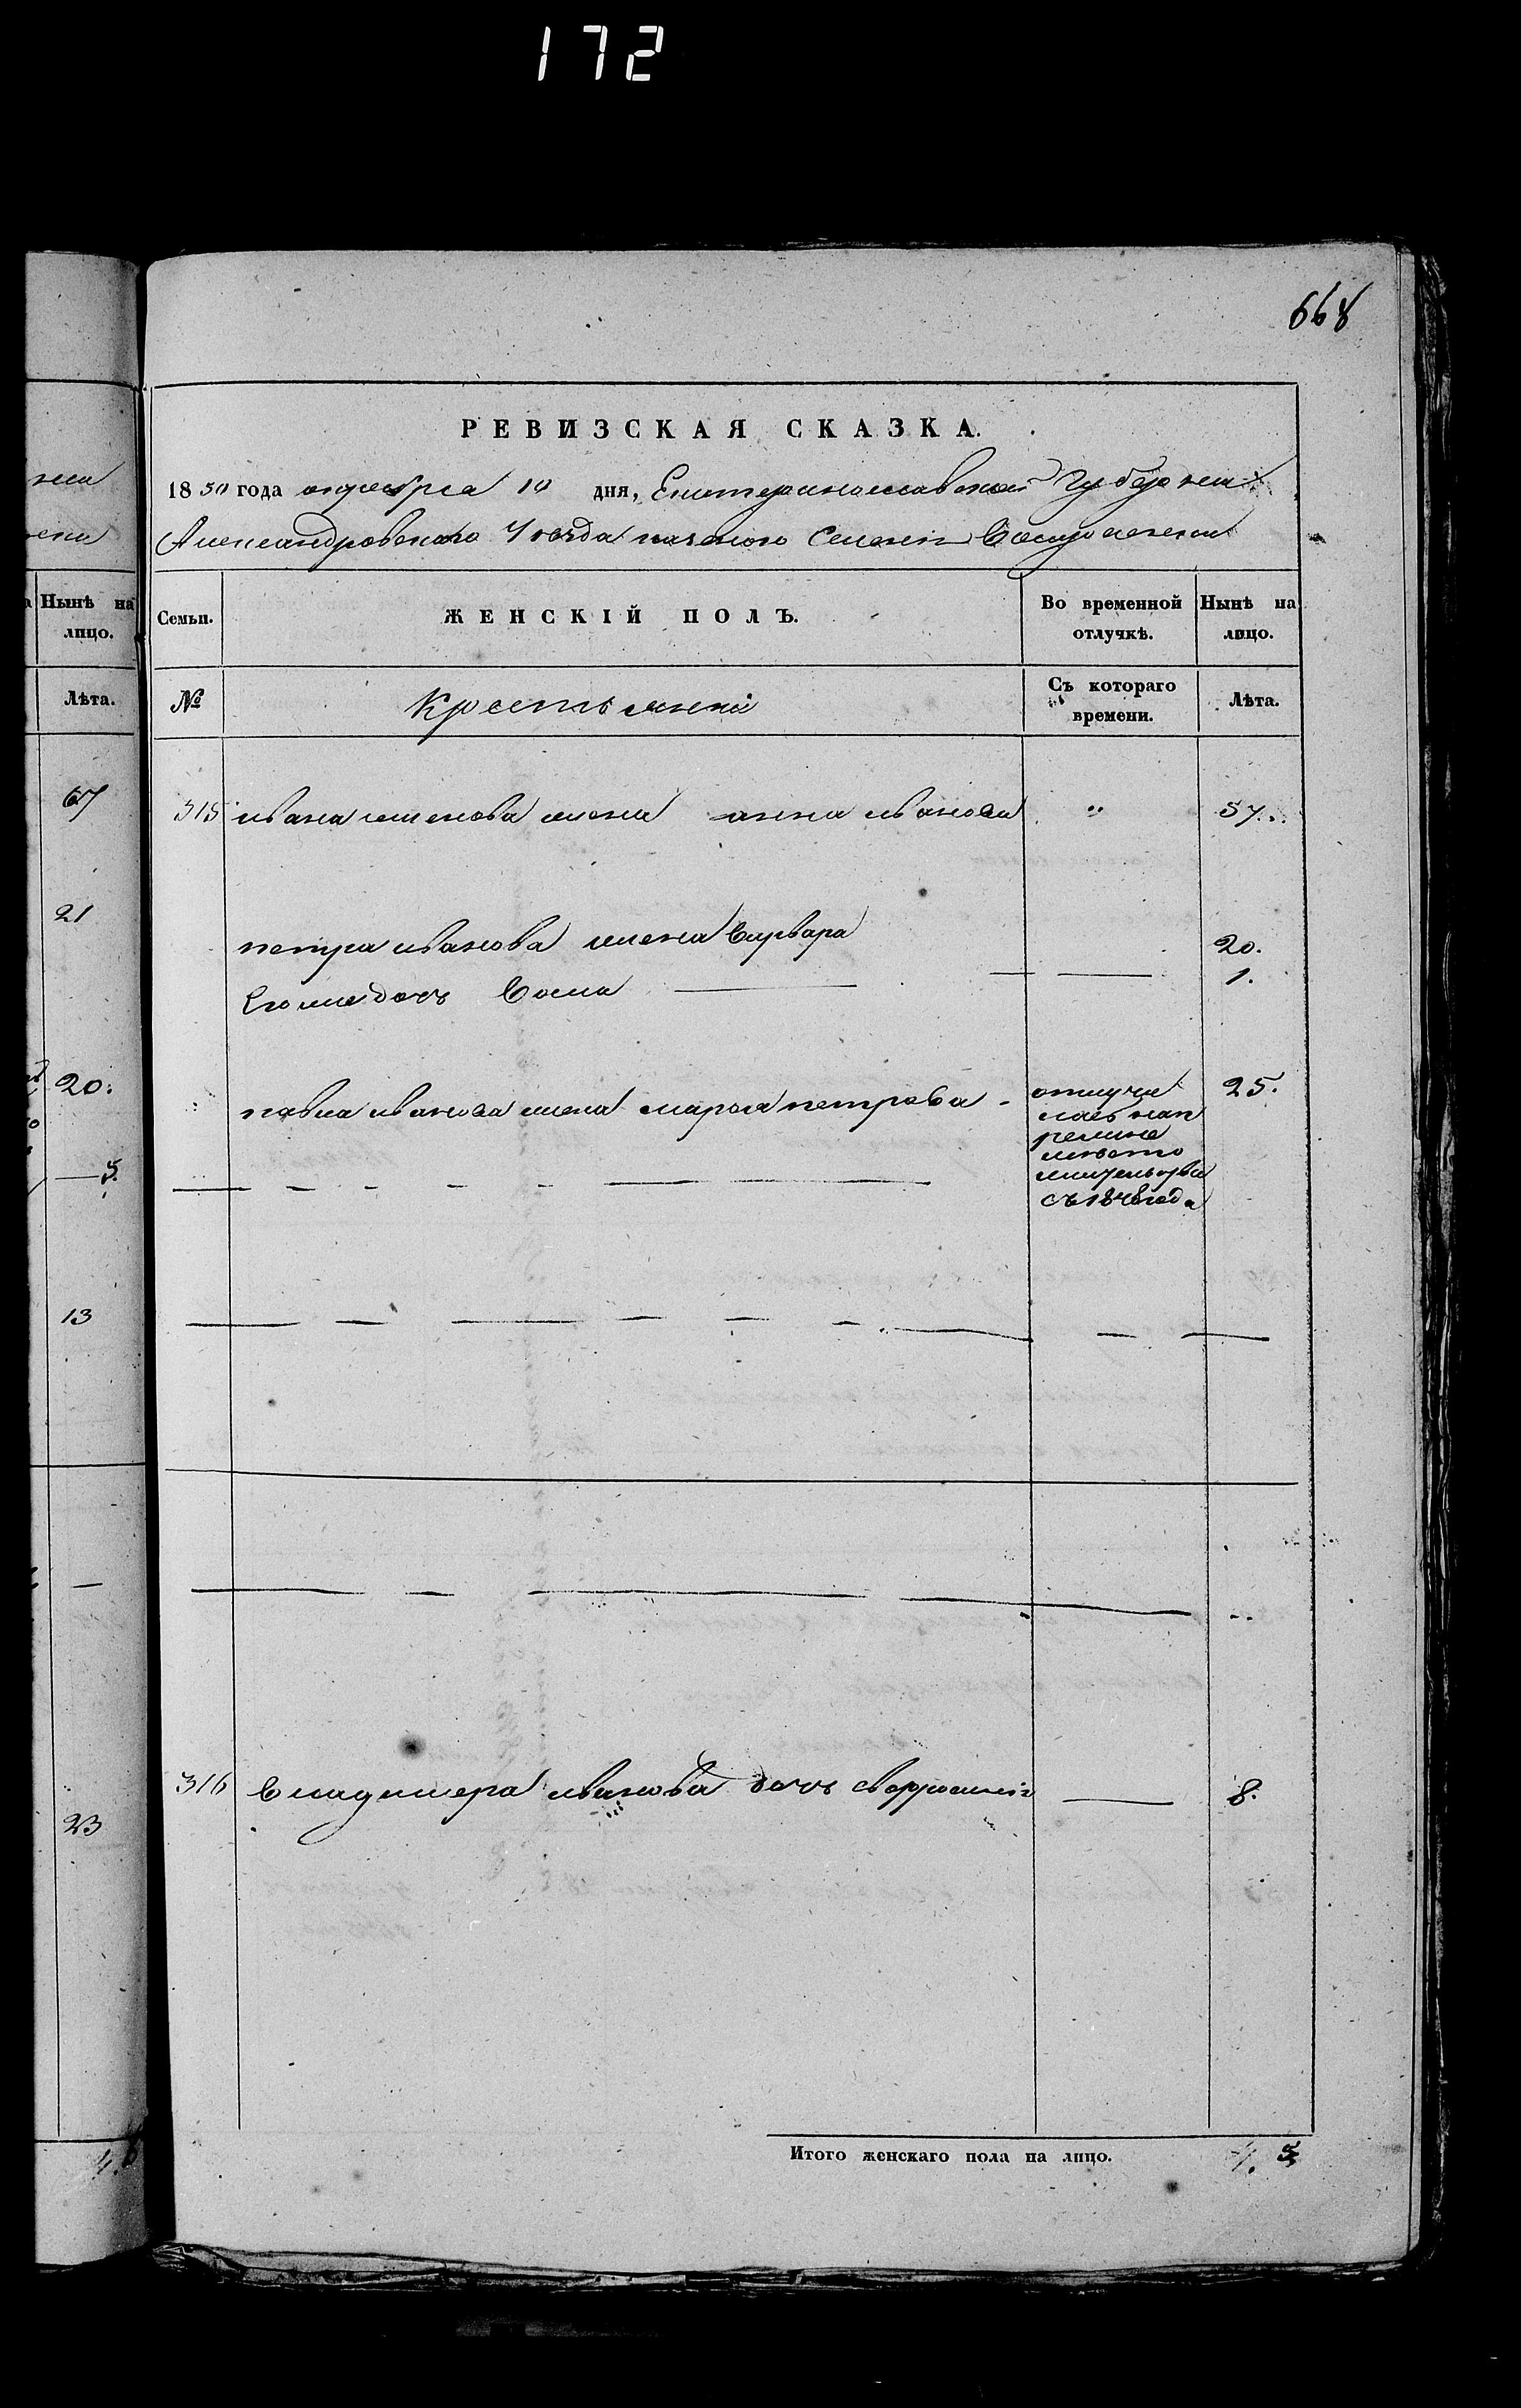 172
668
РЕВИЗСКАЯ СКАЗКА.
1850 года октября 10 дня, Екатеринославской Губернии
Александровского Уезда казеного Селения
Нынѣ на лицо.
Семьи.
ЖЕНСКІЙ ПОЛЪ.
Во временной отлучкѣ.
Нынѣ на лицо.
Лѣта.
№
Крестьянки
Съ котораго времени.
Лѣта.
67
315 ивана семенова жена анна иванова " 57.
21
петра иванова жена варвара 20.
Его же дочь 1.
20.
павла иванова жена марья петрова - отлучи 25.
лась
место
жительства
съ 1848 года
5.
13
316 владимера иванова дочь 8.
23
4. 6
Итого женскаго пола на лицо. 4. 5